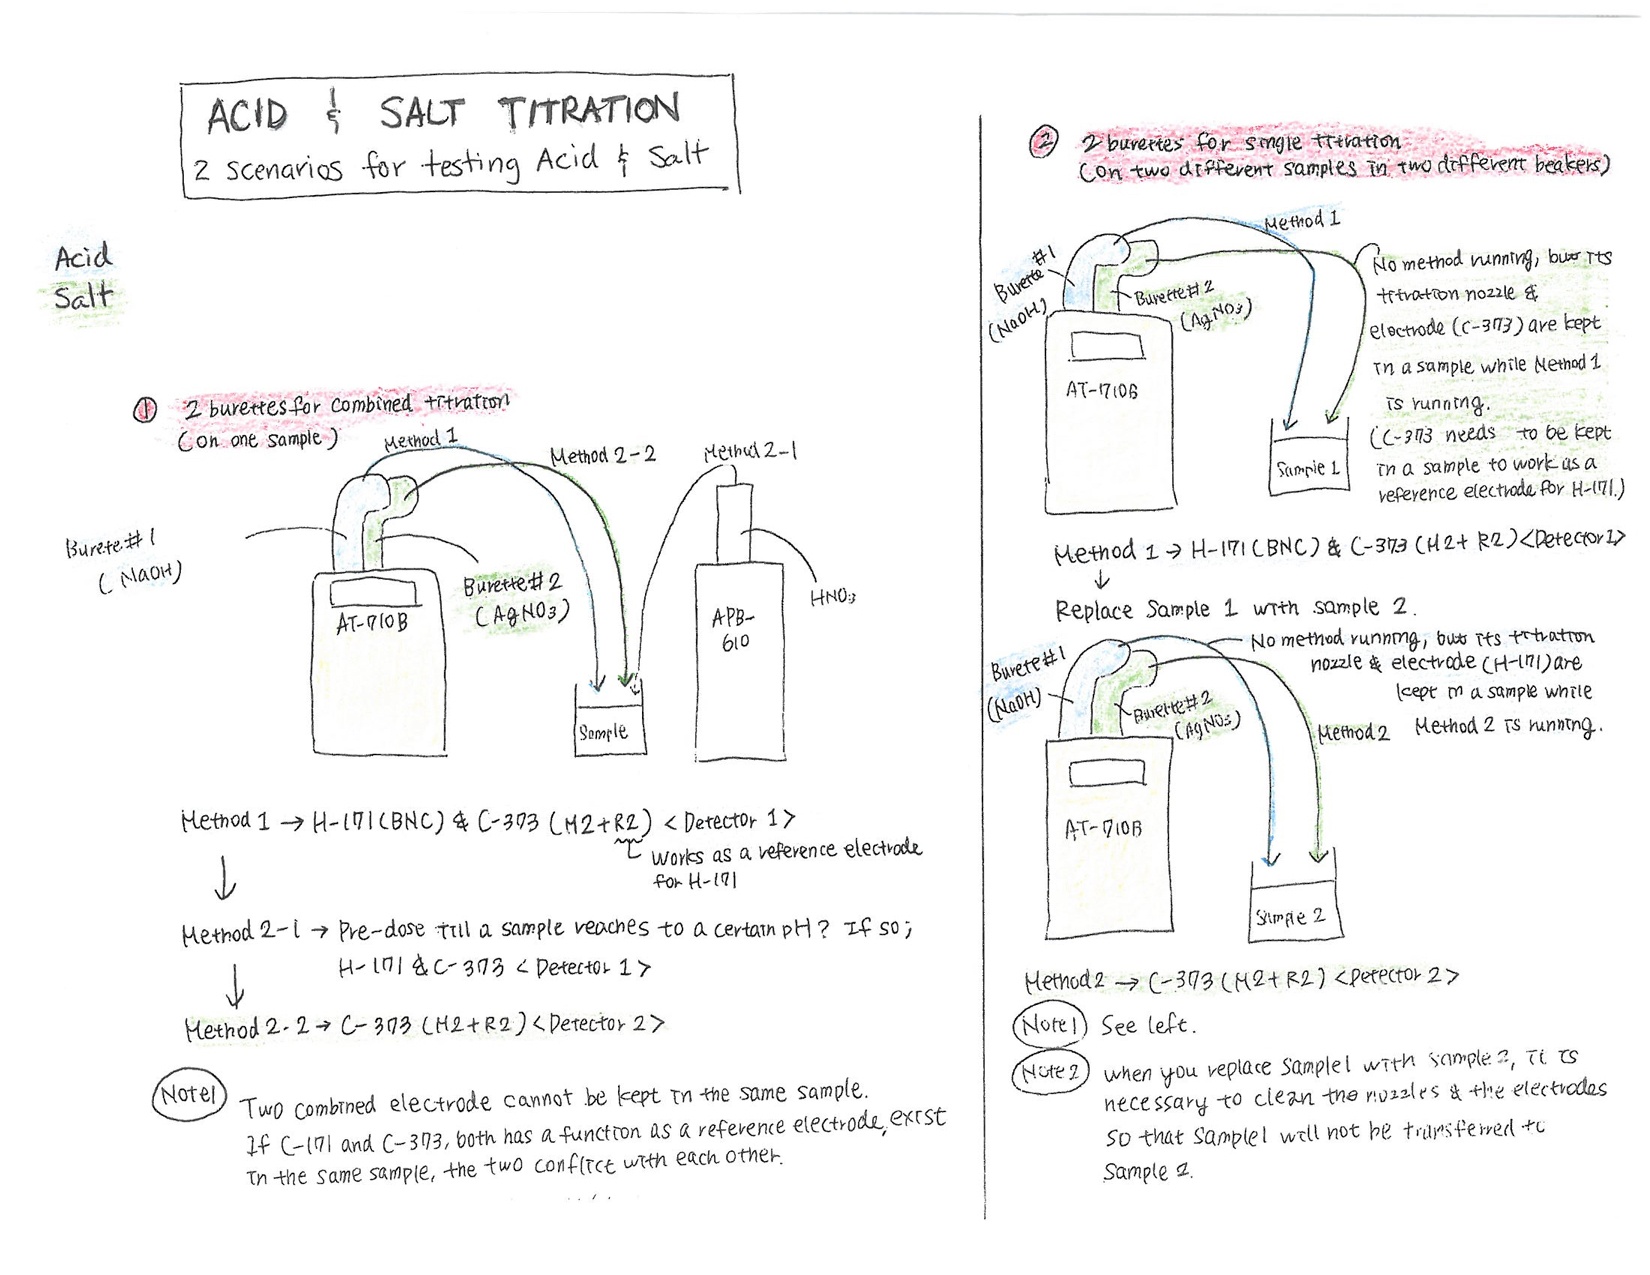 ACID & SALT TITRATION
2 scenarios for testing Acid & Salt
Acid
Salt
① 2 burettes for combined titration
(on one sample)
Method 1
Method 2-2
Method 2-1
Burete #1
(NaOH)
Burette #2
(AgNO3)
HNO3
AT-710B
APB-
610
Sample
Method 1 → H-171(BNC) & C-373 (M2+R2) <Detector 1>
works as a reference electrode
for H-171
↓
Method 2-1 → Pre-dose till a sample reaches to a certain pH? If so;
H-171 & C-373 <Detector 1>
↓
Method 2-2 → C-373 (M2+R2) <Detector 2>
Note1
Two combined electrode cannot be kept in the same sample.
If C-171 and C-373, both has a function as a reference electrode, exist
in the same sample, the two conflict with each other.
② 2 burettes for single titration
(on two different samples in two different beakers)
Method 1
Burette #1
(NaOH)
Burette #2
(AgNO3)
AT-710B
Sample 1
No method running, but its
titration nozzle &
electrode (C-373) are kept
in a sample while Method 1
is running.
(C-373 needs to be kept
in a sample to work as a
reference electrode for H-171.)
Method 1 → H-171(BNC) & C-373 (M2+R2) <Detector 1>
↓
Replace Sample 1 with sample 2.
Burete #1
(NaOH)
Burette #2
(AgNO3)
No method running, but its titration
nozzle & electrode (H-171) are
kept in a sample while
Method 2 is running.
Method 2
AT-710B
Sample 2
Method 2 → C-373 (M2+R2) <Detector 2>
Note1 See left.
Note2 When you replace Sample1 with sample 2, it is
necessary to clean the nozzles & the electrodes
so that Sample1 will not be transferred to
Sample 2.